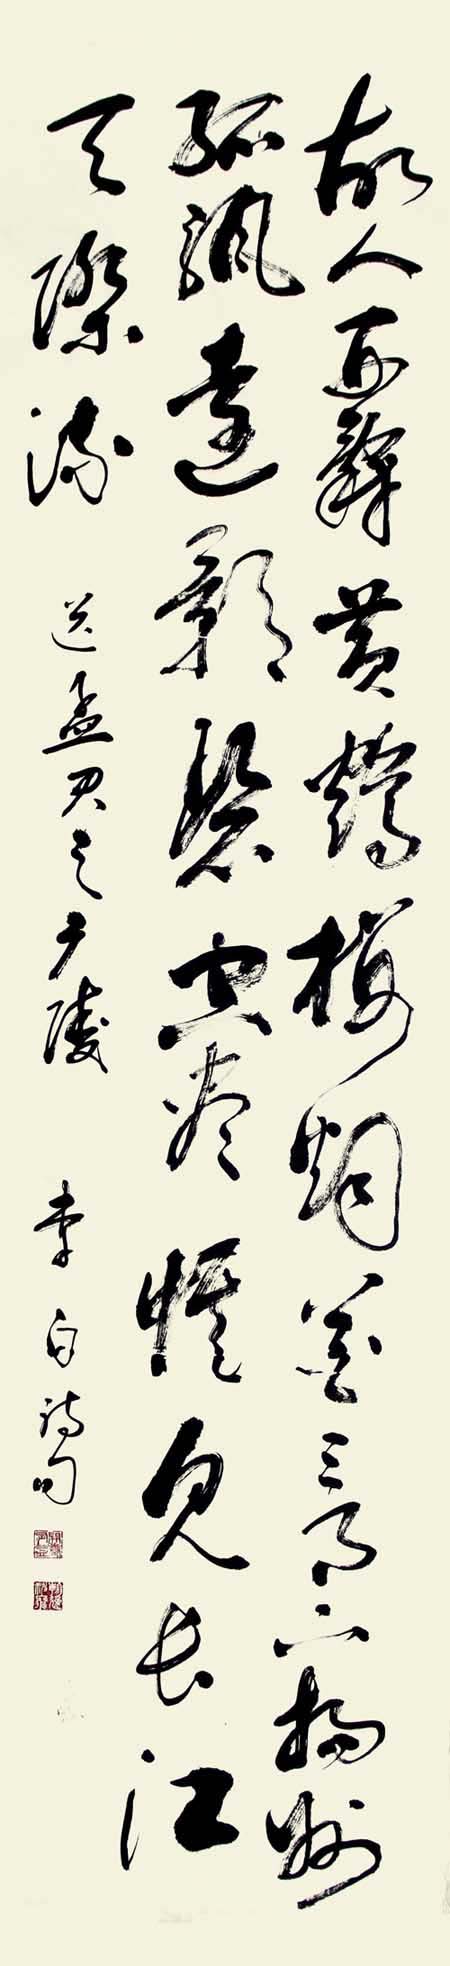 故人西辭黃鶴樓烟花三月下揚州
孤颿遠影碧空盡惟見長江
天際流 送孟君之广陵 李白詩句